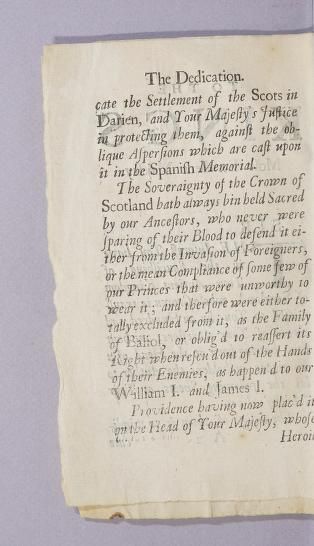 The Dedication.
cate the Settlement of the Scots in
Darien, and Your Majeſty's Juſtice
in protecting them, againſt the ob-
lique Aſperſions which are caſt upon
it in the Spaniſh Memorial.
The Soveraignty of the Crown of
Scotland hath always bin held Sacred
by our Anceſtors, who never were
ſparing of their Blood to defend it ei-
ther from the Invaſion of Foreigners,
or the mean Compliance of ſome few of
our Princes that were unworthy to
wear it; and therfore were either to-
tally excluded from it, as the Family
of Baliol, or oblig'd to reaſſert its
Right when reſcu'd out of the Hands
of their Enemies, as happen'd to our
William I. and James I.
Providence having now plac'd it
on the Head of Your Majeſty, whoſe
Heroi